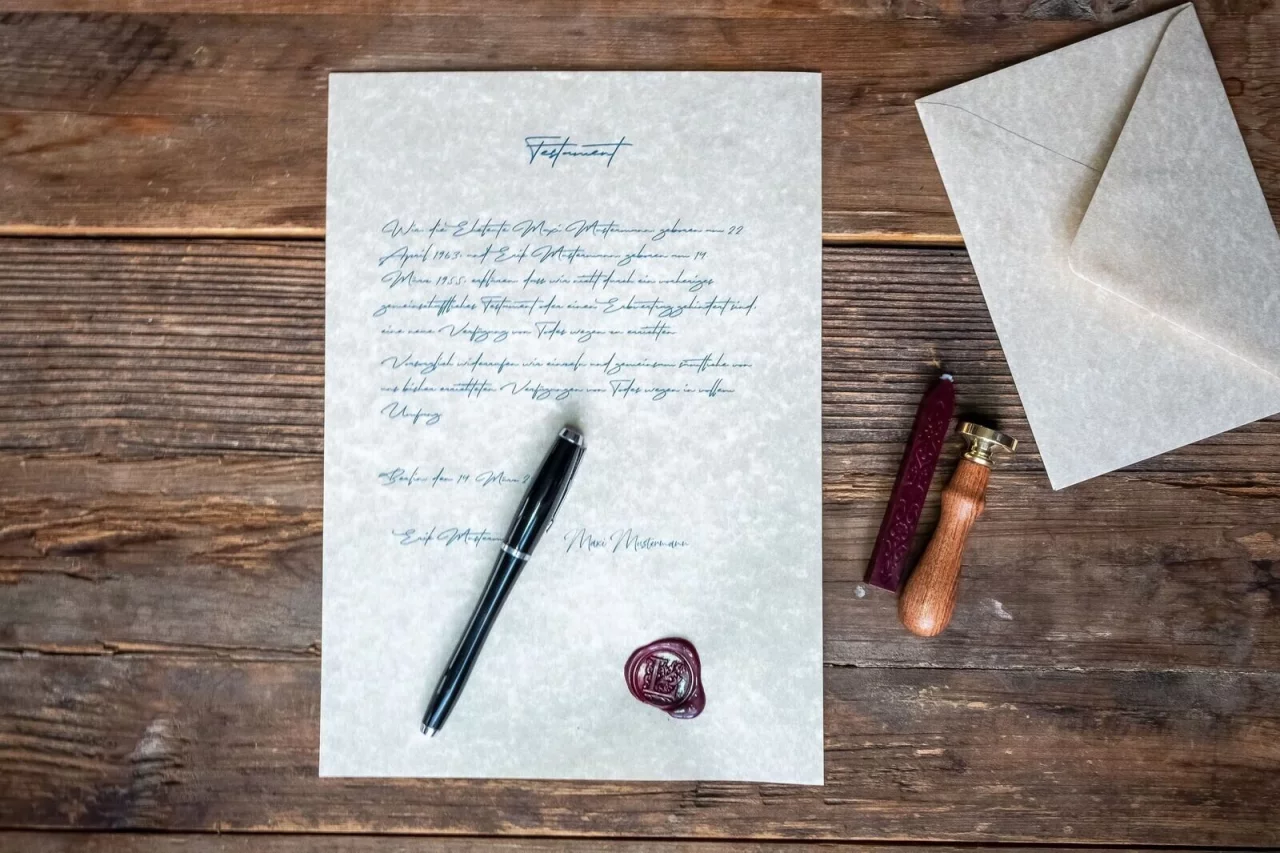 Testament
Wir die Eheleute Maxi Mustermann geboren am 22
April 1963, und Erik Mustermann geboren am 14
März 1955, erklären, dass wir nicht durch ein vorheriges
gemeinschaftliches Testament oder einen Erbvertrag gehindert sind,
eine neue Verfügung von Todes wegen zu errichten
Vorsorglich widerrufen wir einzeln und gemeinsam sämtliche von
uns bisher errichteten Verfügungen von Todes wegen in vollem
Umfang
Berlin den 14. März 2
Erik Musterm
Maxi Mustermann